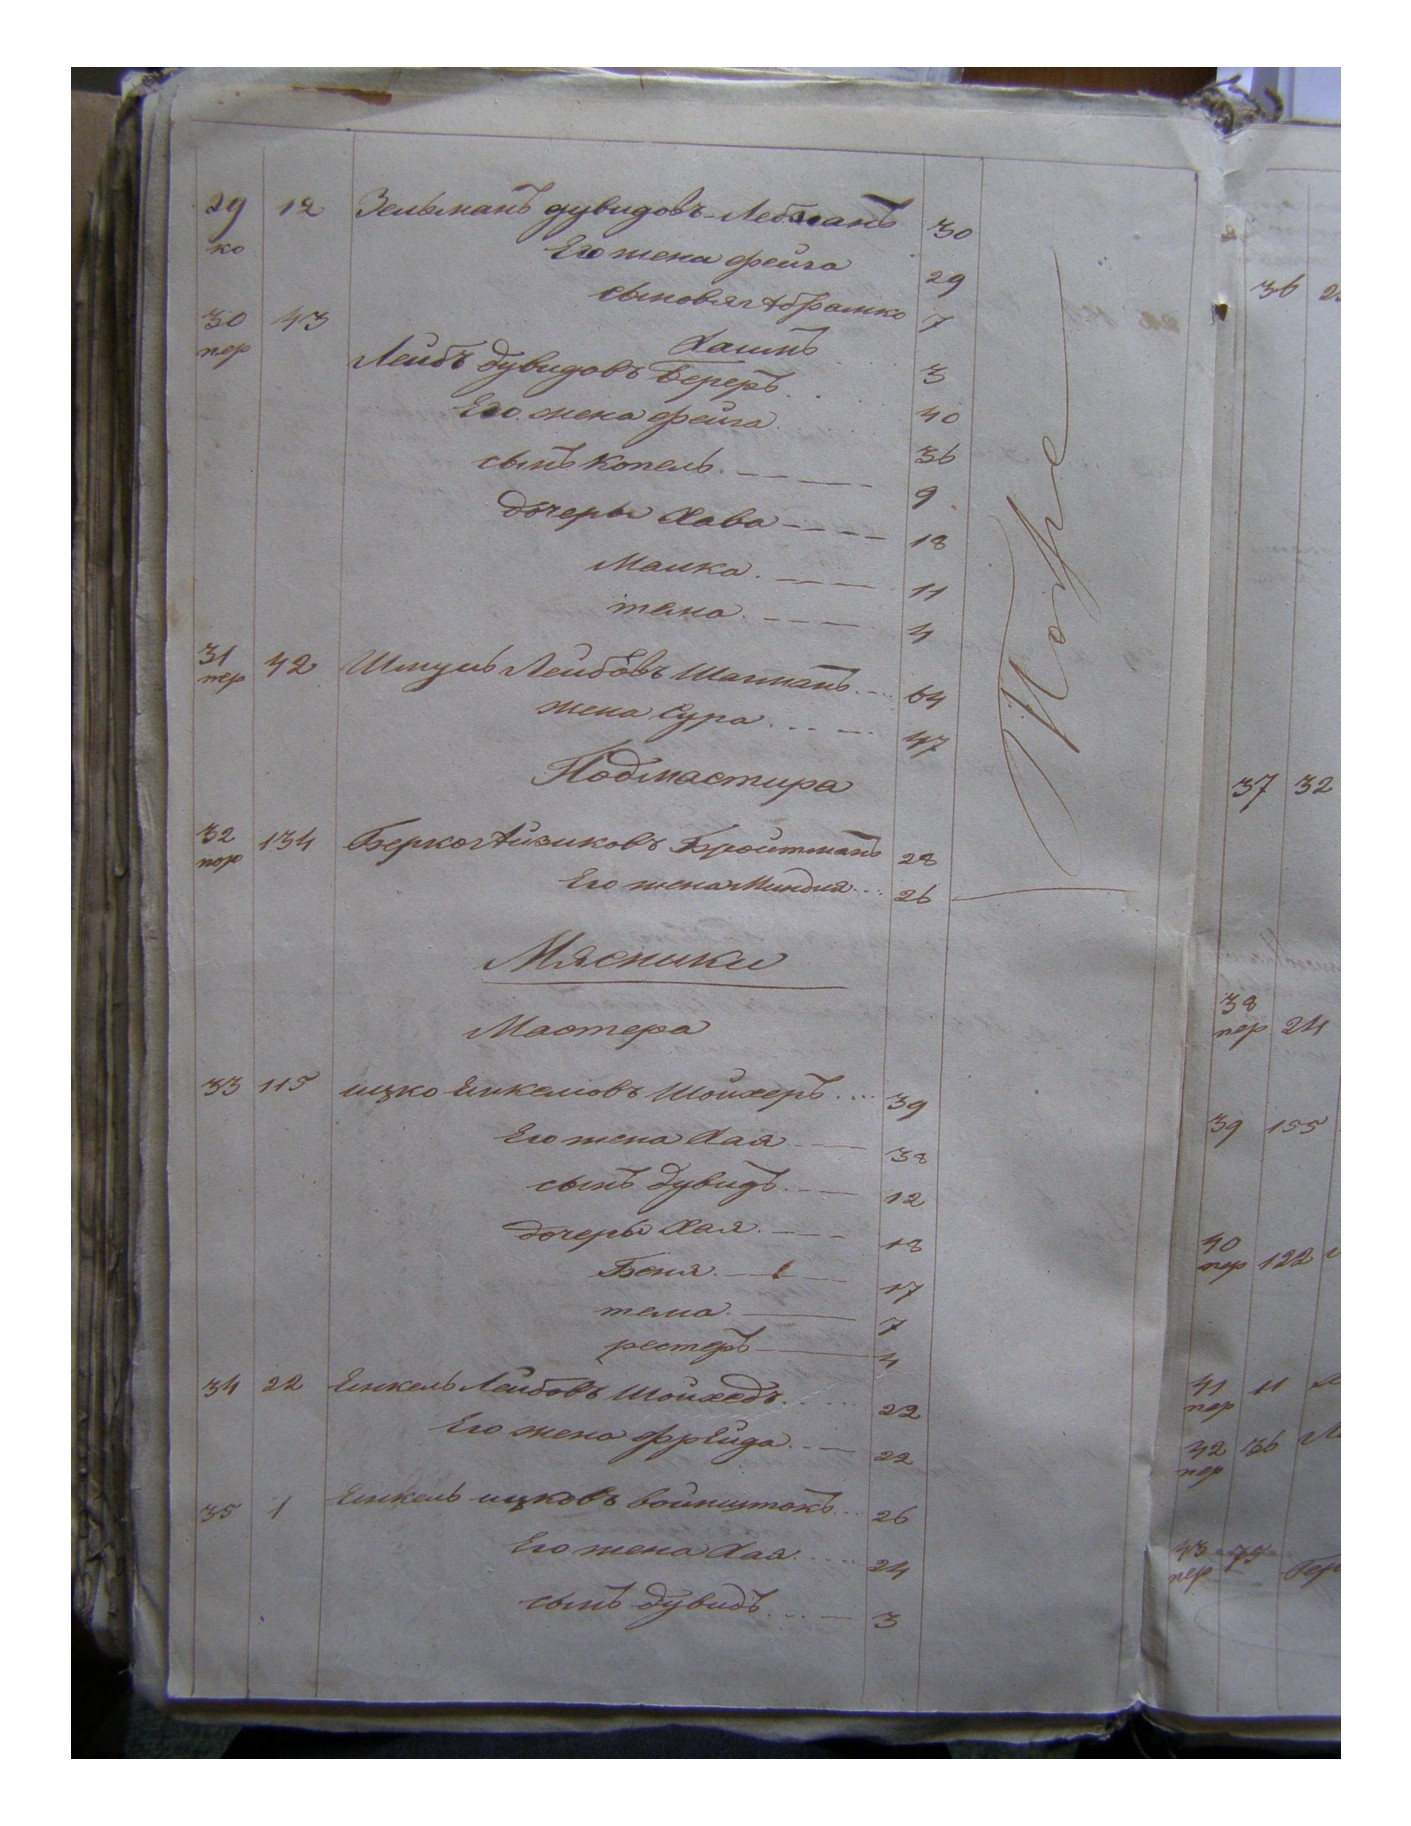 29 12 Зельманъ дувидовъ Лебманъ 30
ко Его жена фейга 29
сыновя Абрамко 7
30 43 Хаимъ 3
пер Лейбъ дувидовъ Береръ 40
Его жена фейга 36
сынъ Копель 9
дочеры Хава 18
Малка 11
тема 4
31 42 Шмуль Лейбовъ Шапманъ 64
пер жена Сура 47
Подмастира
32 134 Берко Айзиковъ Бройтманъ 28
пер Его жена Миндля 26
Мясники
Мастера
33 115 ицко Енкелювъ Шойхеръ 39
Его жена Хая 38
сынъ дувидъ 12
дочеры Хая 18
Беня 17
тема 7
рестеръ 4
34 22 Енкель Лейбовъ Шойхедъ 22
Его жена фрейда 22
35 1 Енкель ицковъ войнштокъ 26
Его жена Хая 24
сынъ дувидъ 3
36
37 32
38
пер 24
39 155
40
пер 122
41 11
пер
42 36
пер
43 75
пер Бер